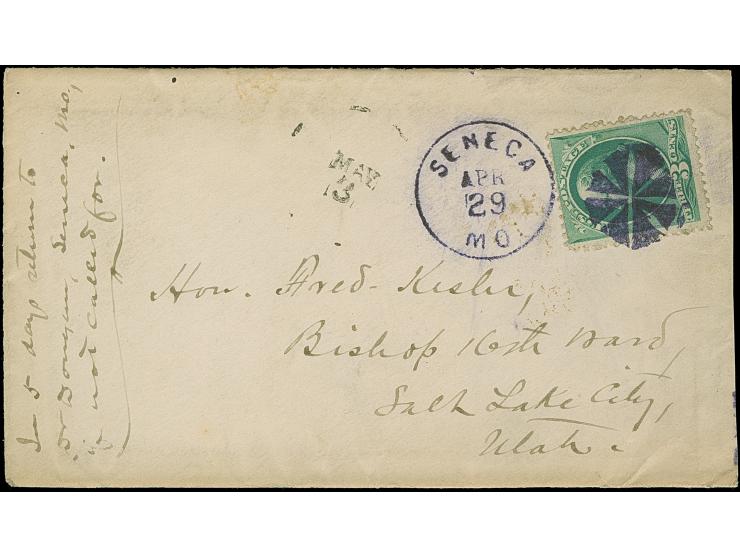 In 5 days return to
Seneca, Mo,
if not called for.
MAY
3
SENECA
APR
29
MO.
Hon. Fred. Kesler,
Bishop 16th Ward,
Salt Lake City,
Utah.